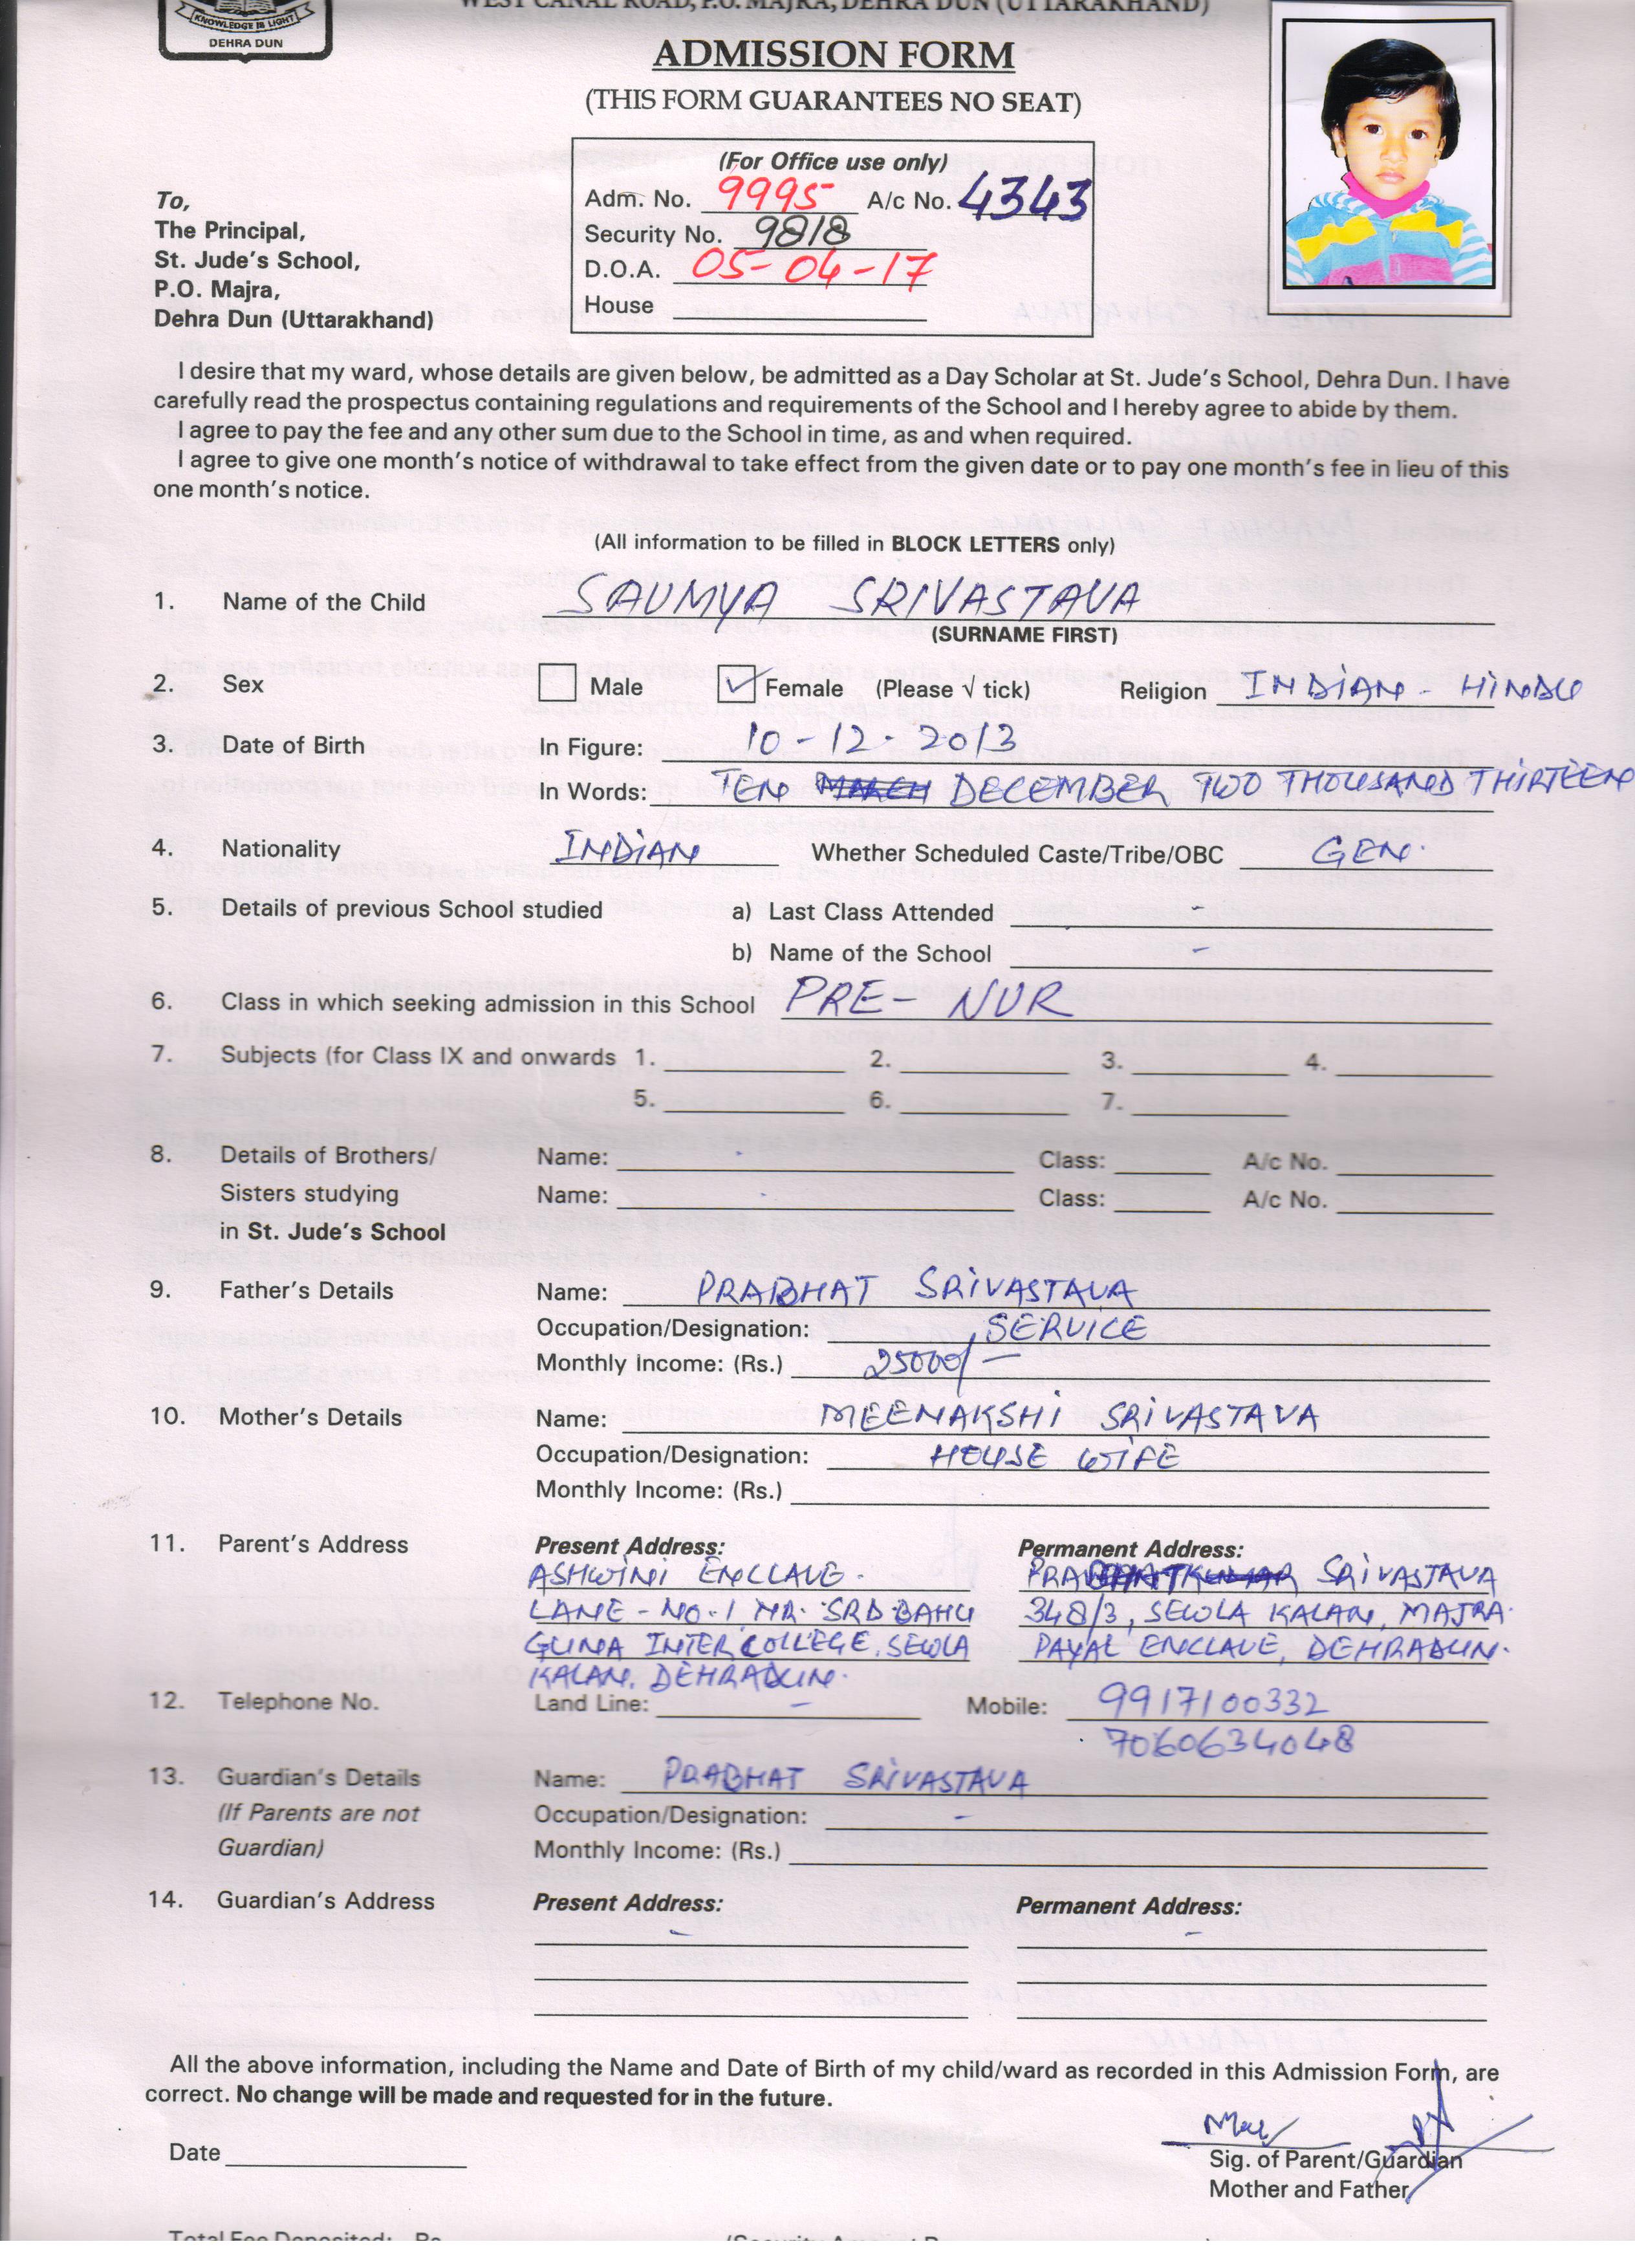 WEST CANAL ROAD, P.O. MAJRA, DEHRA DUN (UTTARAKHAND)
KNOWLEDGE IS LIGHT
DEHRA DUN
ADMISSION FORM
(THIS FORM GUARANTEES NO SEAT)
(For Office use only)
Adm. No. 9995 A/c No. 4343
Security No. 9818
D.O.A. 05-04-17
House
To,
The Principal,
St. Jude's School,
P.O. Majra,
Dehra Dun (Uttarakhand)
I desire that my ward, whose details are given below, be admitted as a Day Scholar at St. Jude's School, Dehra Dun. I have
carefully read the prospectus containing regulations and requirements of the School and I hereby agree to abide by them.
I agree to pay the fee and any other sum due to the School in time, as and when required.
I agree to give one month's notice of withdrawal to take effect from the given date or to pay one month's fee in lieu of this
one month's notice.
(All information to be filled in BLOCK LETTERS only)
1. Name of the Child SAUMYA SRIVASTAVA
(SURNAME FIRST)
2. Sex Male ✓ Female (Please √ tick) Religion INDIAN - HINDU
3. Date of Birth In Figure: 10-12-2013
In Words: TEN MARCH DECEMBER TWO THOUSAND THIRTEEN
4. Nationality INDIAN Whether Scheduled Caste/Tribe/OBC GEN.
5. Details of previous School studied a) Last Class Attended -
b) Name of the School -
6. Class in which seeking admission in this School PRE- NUR
7. Subjects (for Class IX and onwards 1. 2. 3. 4.
5. 6. 7.
8. Details of Brothers/ Name: Class: A/c No.
Sisters studying Name: Class: A/c No.
in St. Jude's School
9. Father's Details Name: PRABHAT SRIVASTAVA
Occupation/Designation: SERVICE
Monthly Income: (Rs.) 25000/-
10. Mother's Details Name: MEENAKSHI SRIVASTAVA
Occupation/Designation: HOUSE WIFE
Monthly Income: (Rs.)
11. Parent's Address Present Address: Permanent Address:
ASHWINI ENCLAVE. SRIVASTAVA
LANE - NO.1 NR. SRD BAHU 348/3, SEWLA KALAN, MAJRA.
GUNA INTER COLLEGE, SEWLA PAYAL ENCLAVE, DEHRADUN.
KALAN, DEHRADUN.
12. Telephone No. Land Line: - Mobile: 9917100332
7060634048
13. Guardian's Details Name: PRABHAT SRIVASTAVA
(If Parents are not Occupation/Designation: -
Guardian) Monthly Income: (Rs.)
14. Guardian's Address Present Address: Permanent Address:
- -
All the above information, including the Name and Date of Birth of my child/ward as recorded in this Admission Form, are
correct. No change will be made and requested for in the future.
Date
Sig. of Parent/Guardian
Mother and Father
Total Fee Deposited: Rs.